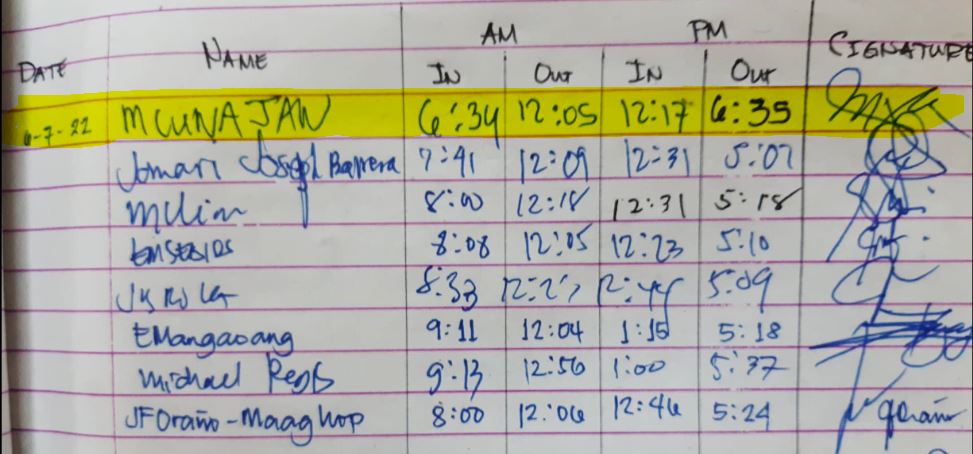 AM PM
DATE NAME IN OUT IN OUT CIGNATURE
6-7-22 MCUNAJAN 6:34 12:05 12:17 6:35
Jomari Joseph Barrera 7:41 12:09 12:31 5:07
mclim 8:00 12:18 12:31 5:18
8:08 12:05 12:23 5:10
8:33 5:09
EMangaoang 9:11 12:04 1:15 5:18
Michael Regis 9:13 12:56 1:00 5:37
JFOraño-Maaghop 8:00 12:06 12:46 5:24